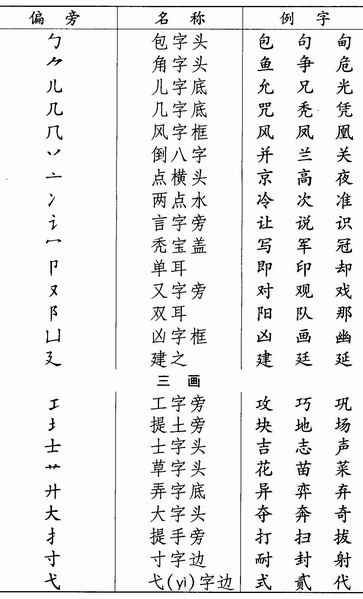 偏旁 名称 例字
勹 包字头 包 句 甸
⺈ 角字头 鱼 争 危
儿 儿字底 允 兄 光
几 几字底 咒 秃 凭
⺇ 风字框 风 凤 凰
丷 倒八字 并 兰 关
亠 点横头 京 高 夜
冫 两点水 冷 次 准
讠 言字旁 让 说 识
冖 秃宝盖 写 军 冠
卩 单耳 即 印 却
又 又字旁 对 观 戏
阝 双耳 阳 队 那
凵 凶字框 凶 画 幽
廴 建之 建 廷 延
三画
工 工字旁 攻 巧 巩
土 提土旁 块 地 场
士 士字头 吉 志 声
艹 草字头 花 苗 菜
廾 弄字底 异 弈 弃
大 大字头 夺 奔 奇
扌 提手旁 打 扫 拔
寸 寸字边 耐 封 射
弋 弋(yì)字边 式 贰 代